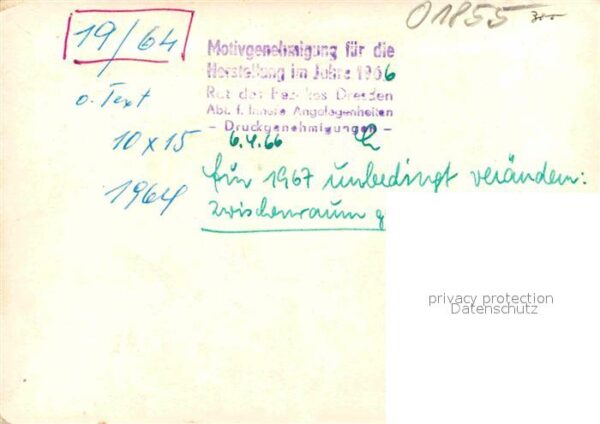 01855 300
19/64
Motivgenehmigung für die
Herstellung im Jahre 1966
Rat des Bezirkes Dresden
Abt. f. Innere Angelegenheiten
- Druckgenehmigungen -
o. Text
10 x 15
6.4.66
1964
für 1967 unbedingt verändern:
Zwischenraum
privacy protection
Datenschutz